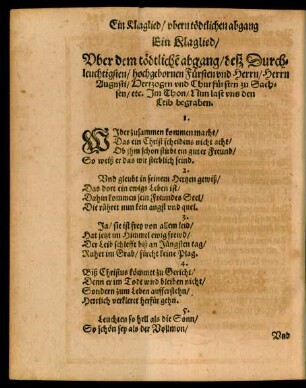 Ein Klaglied / vbern tödtlichen abgang
Ein Klaglied /
Vber dem tödtlichē abgang / deß Durch-
leuchtigsten / hochgebornen Fürsten vnd Herrn / Herrn
Augusti / Hertzogen vnd Churfürsten zu Sach-
sen / etc. Im Thon / Nun last vns den
Leib begraben.
1.
WIder zusammen kommen macht /
Das ein Christ scheidens nicht acht /
Ob jhm schon stirbt ein guter Freund /
So weiß er das wir sterblich seind.
2.
Vnd gleubt in seinem Hertzen gewiß /
Das dort ein ewigs Leben ist /
Dahin kommen sein Freundes Seel /
Die rühret nun kein angst vnd quel.
3.
Ja / sie ist frey von allem leid /
Hat jetzt im Himmel ewig frewd /
Der Leib schlefft biß an Jüngsten tag /
Ruhet im Grab / fürcht keine Plag.
4.
Biß Christus kömmet zu Gericht /
Denn er im Todt wird bleiben nicht /
Sondern zum Leben aufferstehn /
Herrlich verkleret herfür gehn.
5.
Leuchten so hell als die Sonn /
So schön sey als der Vollmon /
Vnd